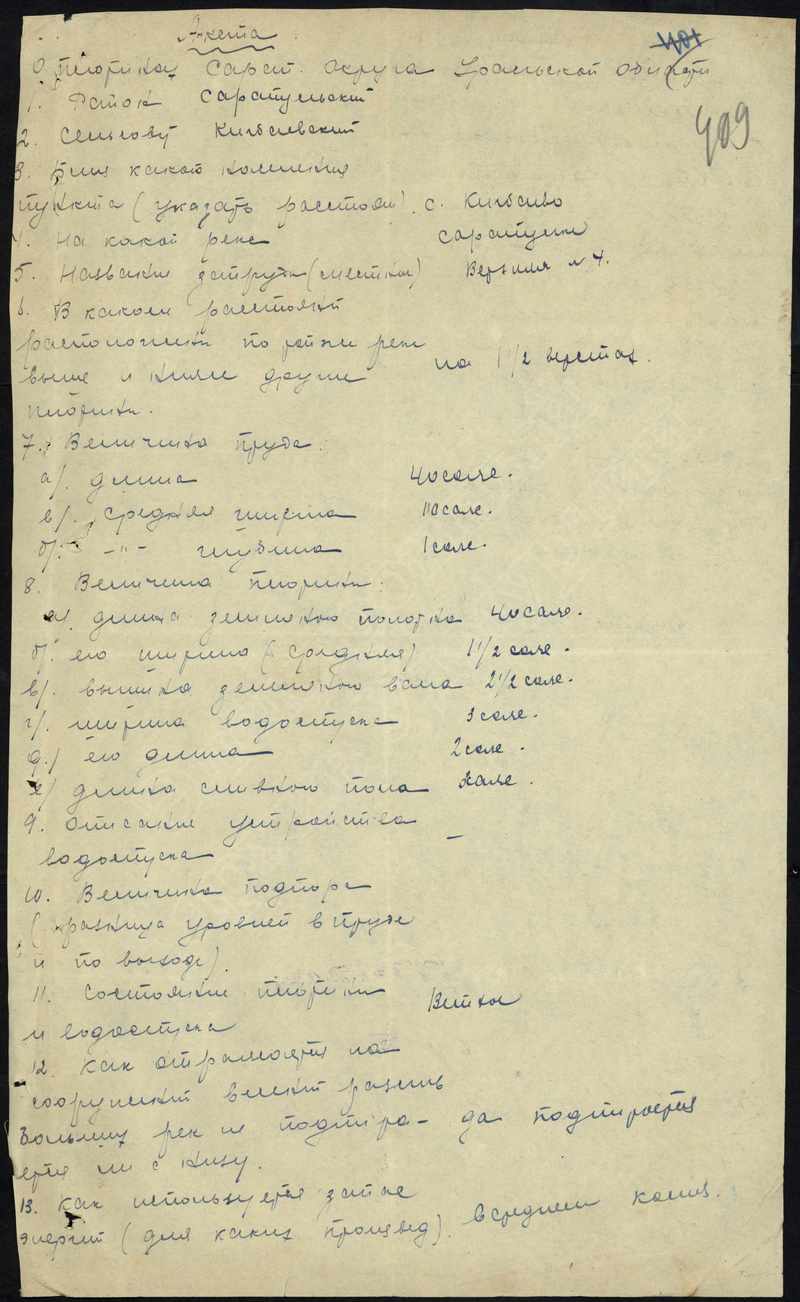 Анкета
401
О плотинах Сарап. округа Уральской области
409
1. Район Сарапульский
2. Сельсовет Кигбаевский
3. Близ какого населения
пункта (указать расстоян). с. Кигбаево
4. На какой реке Сарапулке
5. Название запруды (местное) Верхняя № 4.
6. В каком растояни
расположены по тойже реке
выше и ниже другие на 1 1/2 верстах.
плотины.
7. Величина пруда:
а/. длина 40 саже.
в/. средняя ширина 110 саже.
б/. -"- глубина 1 саже.
8. Величина плотины:
а/. длина земляного полотна 40 саже.
б/. его ширина (средняя) 1 1/2 саже.
в/. вышина земляного вала 2 1/2 саже.
г/. ширина водоспуска 3 саже.
д/ его длина 2 саже.
е/ длина сливного пола саже.
9. Описание устройства
водоспуска —
10. Величина подпора
(разница уровней в пруде
и по выходе).
11. Состояние плотины Ветхое
и водоспуска
12. Как отражается на
сооружений вешний разлив
больших рек не подпира- да подпирается
ется ли с низу.
13. Как используется запас
энергии (для каких производ). в среднем